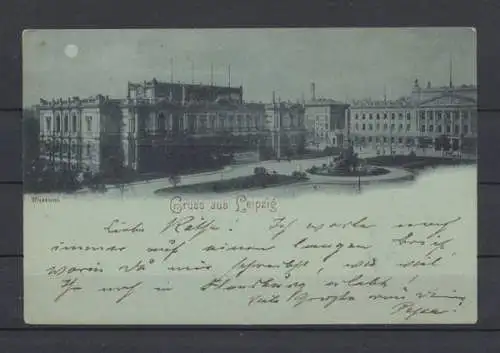 Museum.
Gruss aus Leipzig
Liebe Käthe! Ich warte noch
immer auf einen langen Brief,
worin du mir schreibst, wie viel
Ihr noch in Hamburg erlebt!
Viele Grüße von Deinem
Papa.